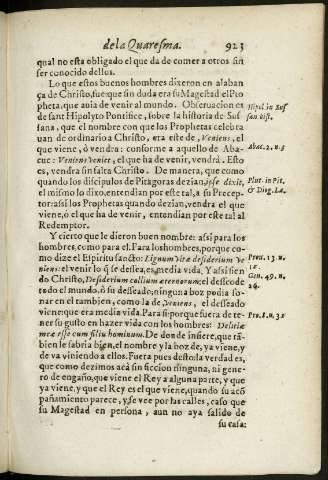 de la Quaresma. 923
qual no esta obligado el que da de comer a otros sin
ser conocido dellos.
Lo que estos buenos hombres dixeron en alaban
ça de Christo, fue: que sin duda era su Magestad el Pro
pheta, que auia de venir al mundo. Obseruacion es
de sant Hipolyto Pontifice, sobre la historia de Suf
sana, que el nombre con que los Prophetas celebra
uan de ordinario a Christo, era este de, Veniens, el
que viene, ò vendra: conforme a aquello de Aba-
cuc: Veniens veniet, el que ha de venir, vendrá. Esto
es, vendra sin falta Christo. De manera, que como
quando los discipulos de Pitagoras dezian, ipse dixit,
el mismo lo dixo, entendian por este tal, a su Precep-
tor: assi los Prophetas quando dezian, vendra el que
viene, ò el que ha de venir, entendian por este tal al
Redemptor.
Hipol. in Suf
san hist.
Abac. 2. n. 3
Plut. in Pit.
& Diog. La.
Y cierto que le dieron buen nombre: assi para los
hombres, como para el. Para los hombres, porque co-
mo dize el Espiritu sancto: Lignum vitæ desiderium ve
niens: el venir lo que se dessea, es, media vida. Y assi sien
do Christo, Desiderium collium æternorum: el desseo de
todo el mundo, ò su desseado, ninguna boz podia so-
nar en el tambien, como la de, Veniens, el desseado
viene: que era media vida. Para si: porque fuera de te-
ner su gusto en hazer vida con los hombres: Delitiæ
meæ esse cum filiis hominum. De donde infiere, que tã-
bien le sabria bien, el nombre y la boz de, ya viene, y
de va viniendo a ellos. Fuera pues desto: la verdad es,
que como dezimos acâ sin ficcion ninguna, ni gene-
ro de engaño, que viene el Rey a alguna parte, y que
ya viene, y que el Rey es el que viene, quando su acõ
pañamiento parece, y se vee por las calles, caso que
su Magestad en persona, aun no aya salido de
su casa:
Prou. 13. n.
12.
Gen. 49. n.
26.
Pro. 8. n. 31